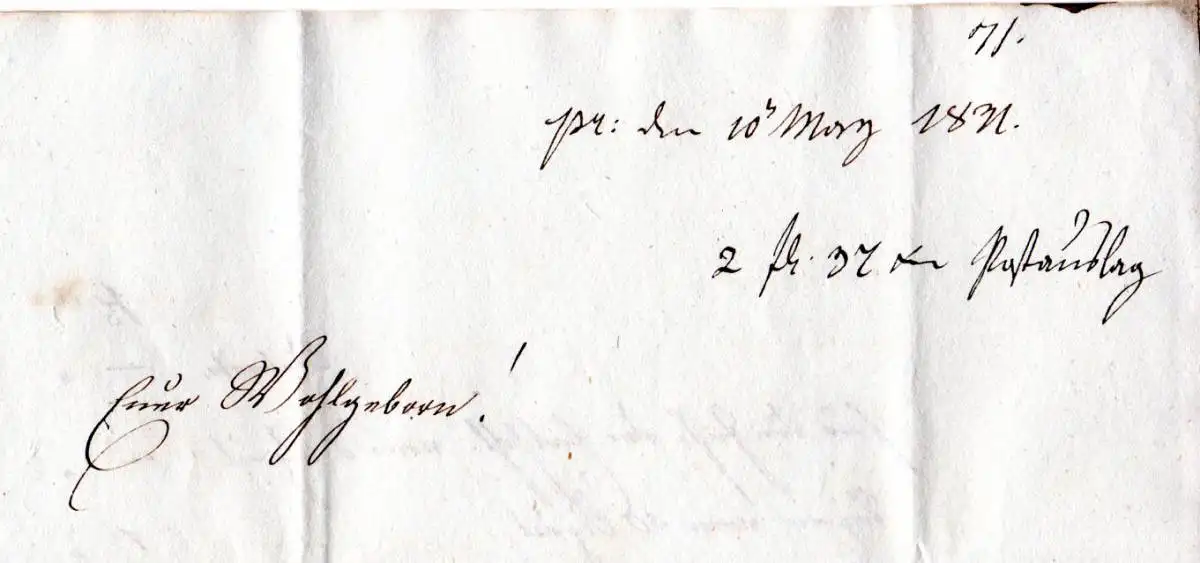 71.
pr: den 10t März 1831.
2 fl. 37 xr Postauslag
Euer Wohlgeborn!